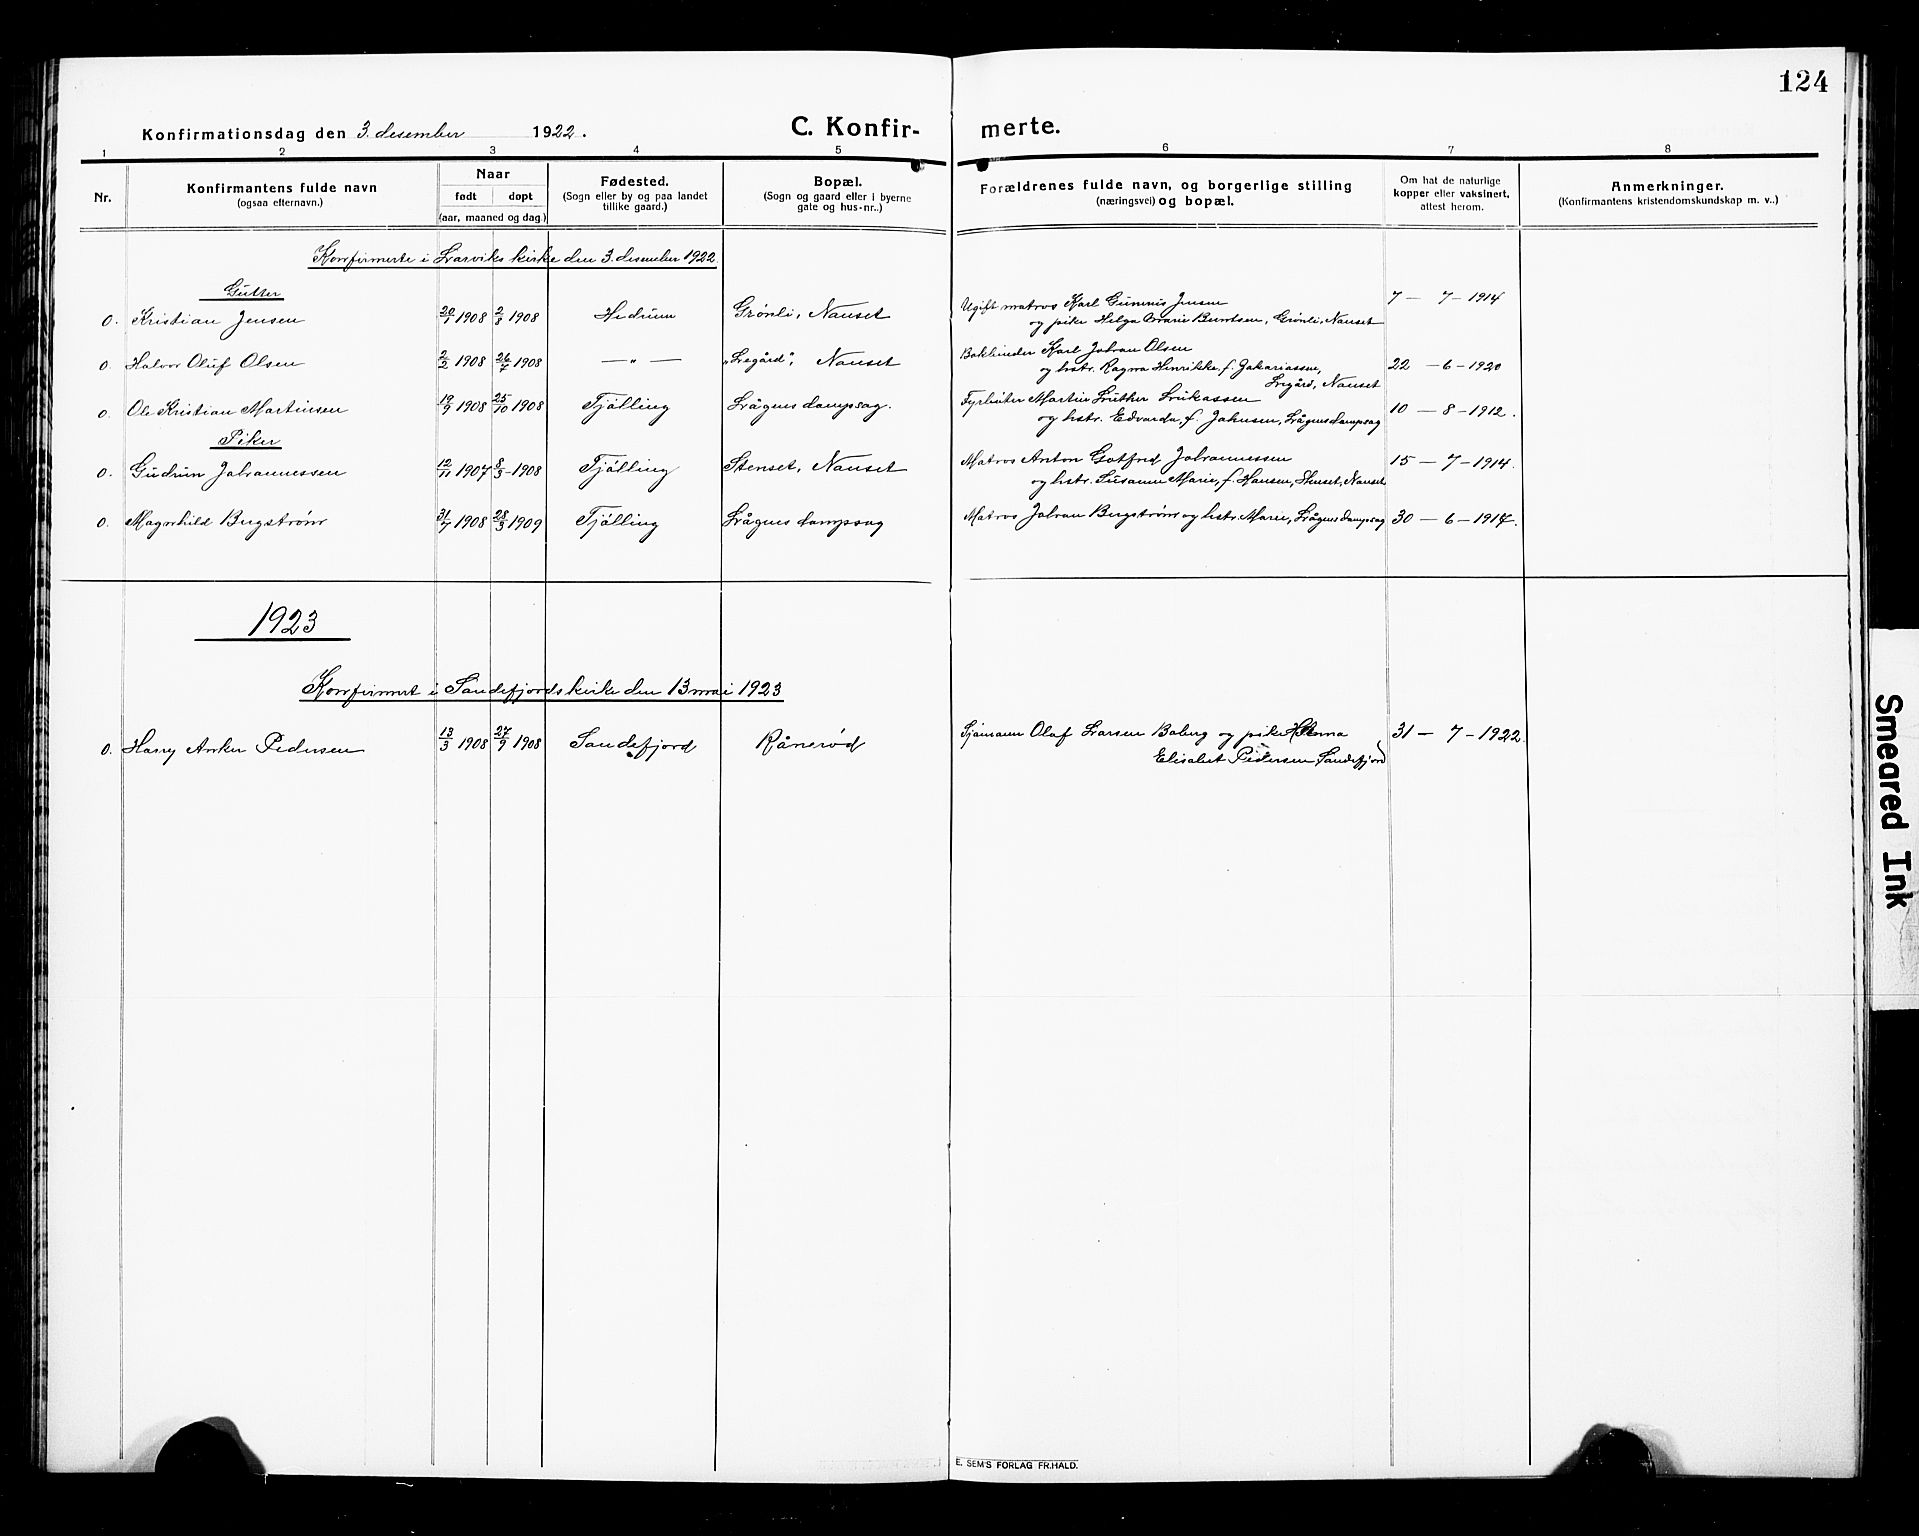 124
Konfirmationsdag den 3. desember 1922.
C. Konfir-merte.
1 2 3 4 5 6 7 8
Nr.
Konfirmantens fulde navn
(ogsaa efternavn.)
Naar
født døpt
(aar, maaned og dag.)
Fødested.
(Sogn eller by og paa landet
tillike gaard.)
Bopæl.
(Sogn og gaard eller i byerne
gate og hus-nr..)
Forældrenes fulde navn, og borgerlige stilling
(næringsvei) og bopæl.
Om hat de naturlige
kopper eller vaksinert,
attest herom.
Anmerkninger.
(Konfirmantens kristendomskundskap m. v..)
Konfirmerte i Larviks kirke den 3. desember 1922.
Gutter
0. Kristian Jensen 20/1 1908 2/8 1908 Hedrum Grönli, Nanset Ugift matros Karl Gunnius Jensen 7 - 7 - 1914
og pike Helga Marie Berntsen, Grönli, Nanset
0. Halvor Oluf Olsen 2/2 1908 26/7 1908 — " — "Legård", Nanset Bokbinder Karl Johan Olsen 22 - 6 - 1920
og hstr. Ragna Henrikke f. Zakariassen,
Legård, Nanset
0. Ole Kristian Martinsen 19/9 1908 25/10 1908 Tjölling Lågens dampsag. Fyrböter Martin Luther Lukassen 10 - 8 - 1912.
og hstr. Edvarda, f. Jahnsen, Lågens dampsag
Piker
0. Gudrun Johannessen 12/11 1907 8/3 - 1908 Tjölling Stenset, Nanset Matros Anton Gotfred Johannessen 15 - 7 - 1914.
og hstr. Susanne Marie, f. Hansen, Stenset, Nanset
0. Magnhild Bergström 31/7 1908 28/3 1909 Tjölling Lågens dampsag Matros Johan Bergström og hstr. Marie, Lågens dampsag 30 - 6 - 1914.
1923
Konfirmert i Sandefjords kirke den 13 mai 1923
0. Harry Anker Pedersen 13/3 1908 27/9 1908 Sandefjord Rånerød Sjömann Olaf Larsen Boberg og pike 31 - 7 - 1922.
Elisabet Pedersen, Sandefjord
E. SEM'S FORLAG FR.HALD.
Smeared Ink